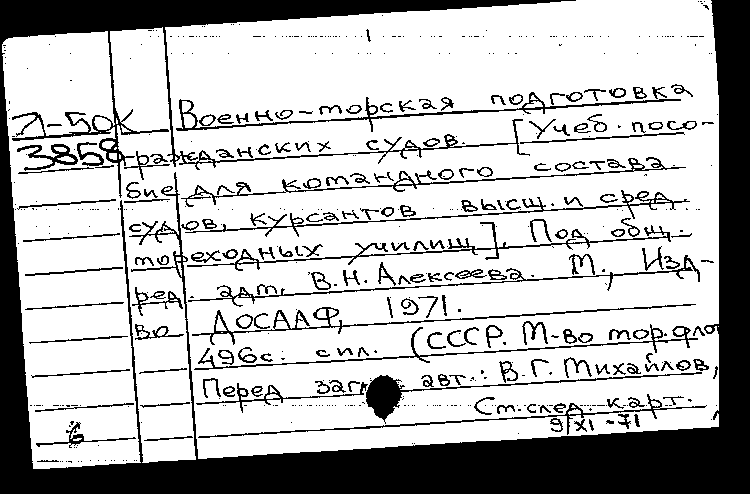 Л-50К
3858
Военно-морская подготовка
гражданских судов. [Учеб. посо-
бие для командного состава
судов, курсантов высш. и сред.
мореходных училищ]. Под общ.
ред. адм. В.Н. Алексеева. М., Изд-
во ДОСААФ, 1971.
496с. с ил. (СССР. М-во мор. фло
Перед загл. авт.: В.Г. Михайлов,
См. след. карт.
9/XI-71
б